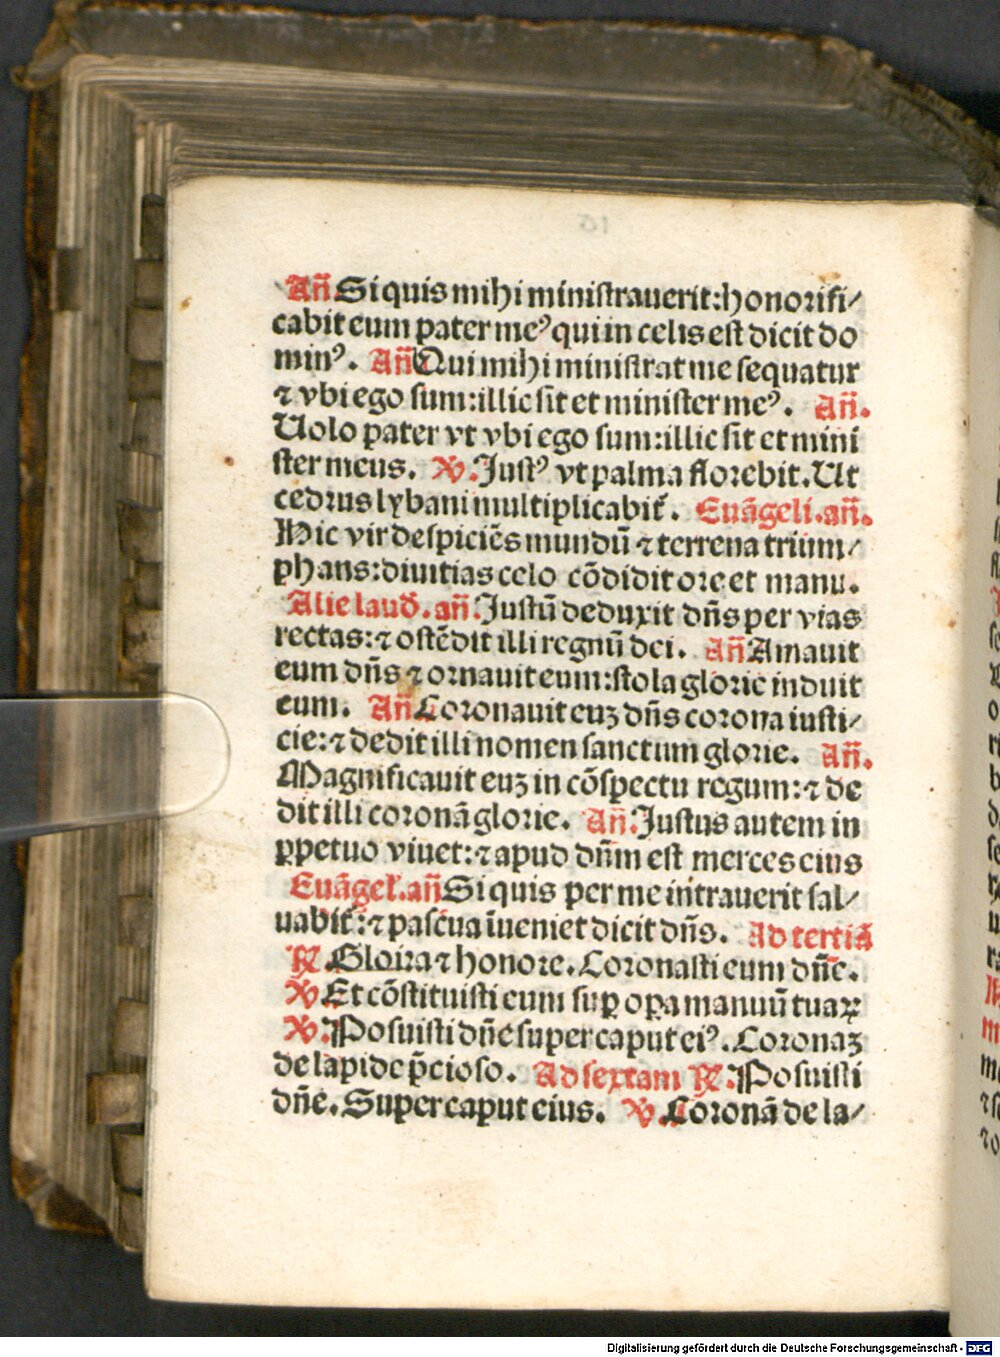 Añ Si quis mihi ministrauerit: honorifi/
cabit eum pater meꝰ qui in celis est dicit do
minꝰ. Añ Qui mihi ministrat me sequatur
⁊ vbi ego sum: illic sit et minister meꝰ. Añ.
Uolo pater vt vbi ego sum: illic sit et mini
ster meus. ℣. Justꝰ vt palma florebit. Ut
cedrus lybani multiplicabit᷑. Euãgeli. añ.
Hic vir despiciẽs mundũ ⁊ terrena trium/
phans: diuitias celo cõdidit ore et manu.
Alie laud̛. añ. Justũ deduxit dñs per vias
rectas: ⁊ ostẽdit illi regnũ dei. Añ Amauit
eum dñs ⁊ ornauit eum: stola glorie induit
eum. Añ Coronauit euʒ dñs corona iusti/
cie: ⁊ dedit illi nomen sanctum glorie. Añ.
Magnificauit euʒ in cõspectu regum: ⁊ de
dit illi coronã glorie. Añ. Justus autem in
ꝑpetuo viuet: ⁊ apud dñm est merces eius
Euãgel᷑. añ Si quis per me intrauerit sal/
uabit᷑: ⁊ pascua ĩueniet dicit dñs. Ad tertiã
℟. Gloria ⁊ honore. Coronasti eum dñe.
℣. Et cõstituisti eum suꝑ oꝑa manuũ tuaꝝ
℣. Posuisti dñe super caput eiꝰ. Coronaʒ
de lapide p̃cioso. Ad sextam ℟. Posuisti
dñe. Super caput eius. ℣. Coronã de la/
Digitalisierung gefördert durch die Deutsche Forschungsgemeinschaft - DFG